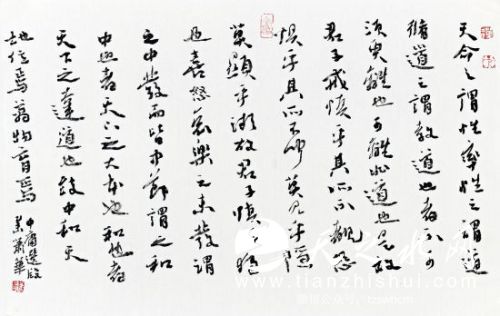 天命之謂性率性之謂道
脩道之謂教道也者不可
須臾離也可離非道也是故
君子戒慎乎其所不覩恐
懼乎其所不聞莫見乎隱
莫顯乎微故君子慎其獨
也喜怒哀樂之未發謂
之中發而皆中節謂之和
中也者天下之大本也和也者
天下之達道也致中和天
地位焉萬物育焉
中庸選段
微信公众号:tzswhcm